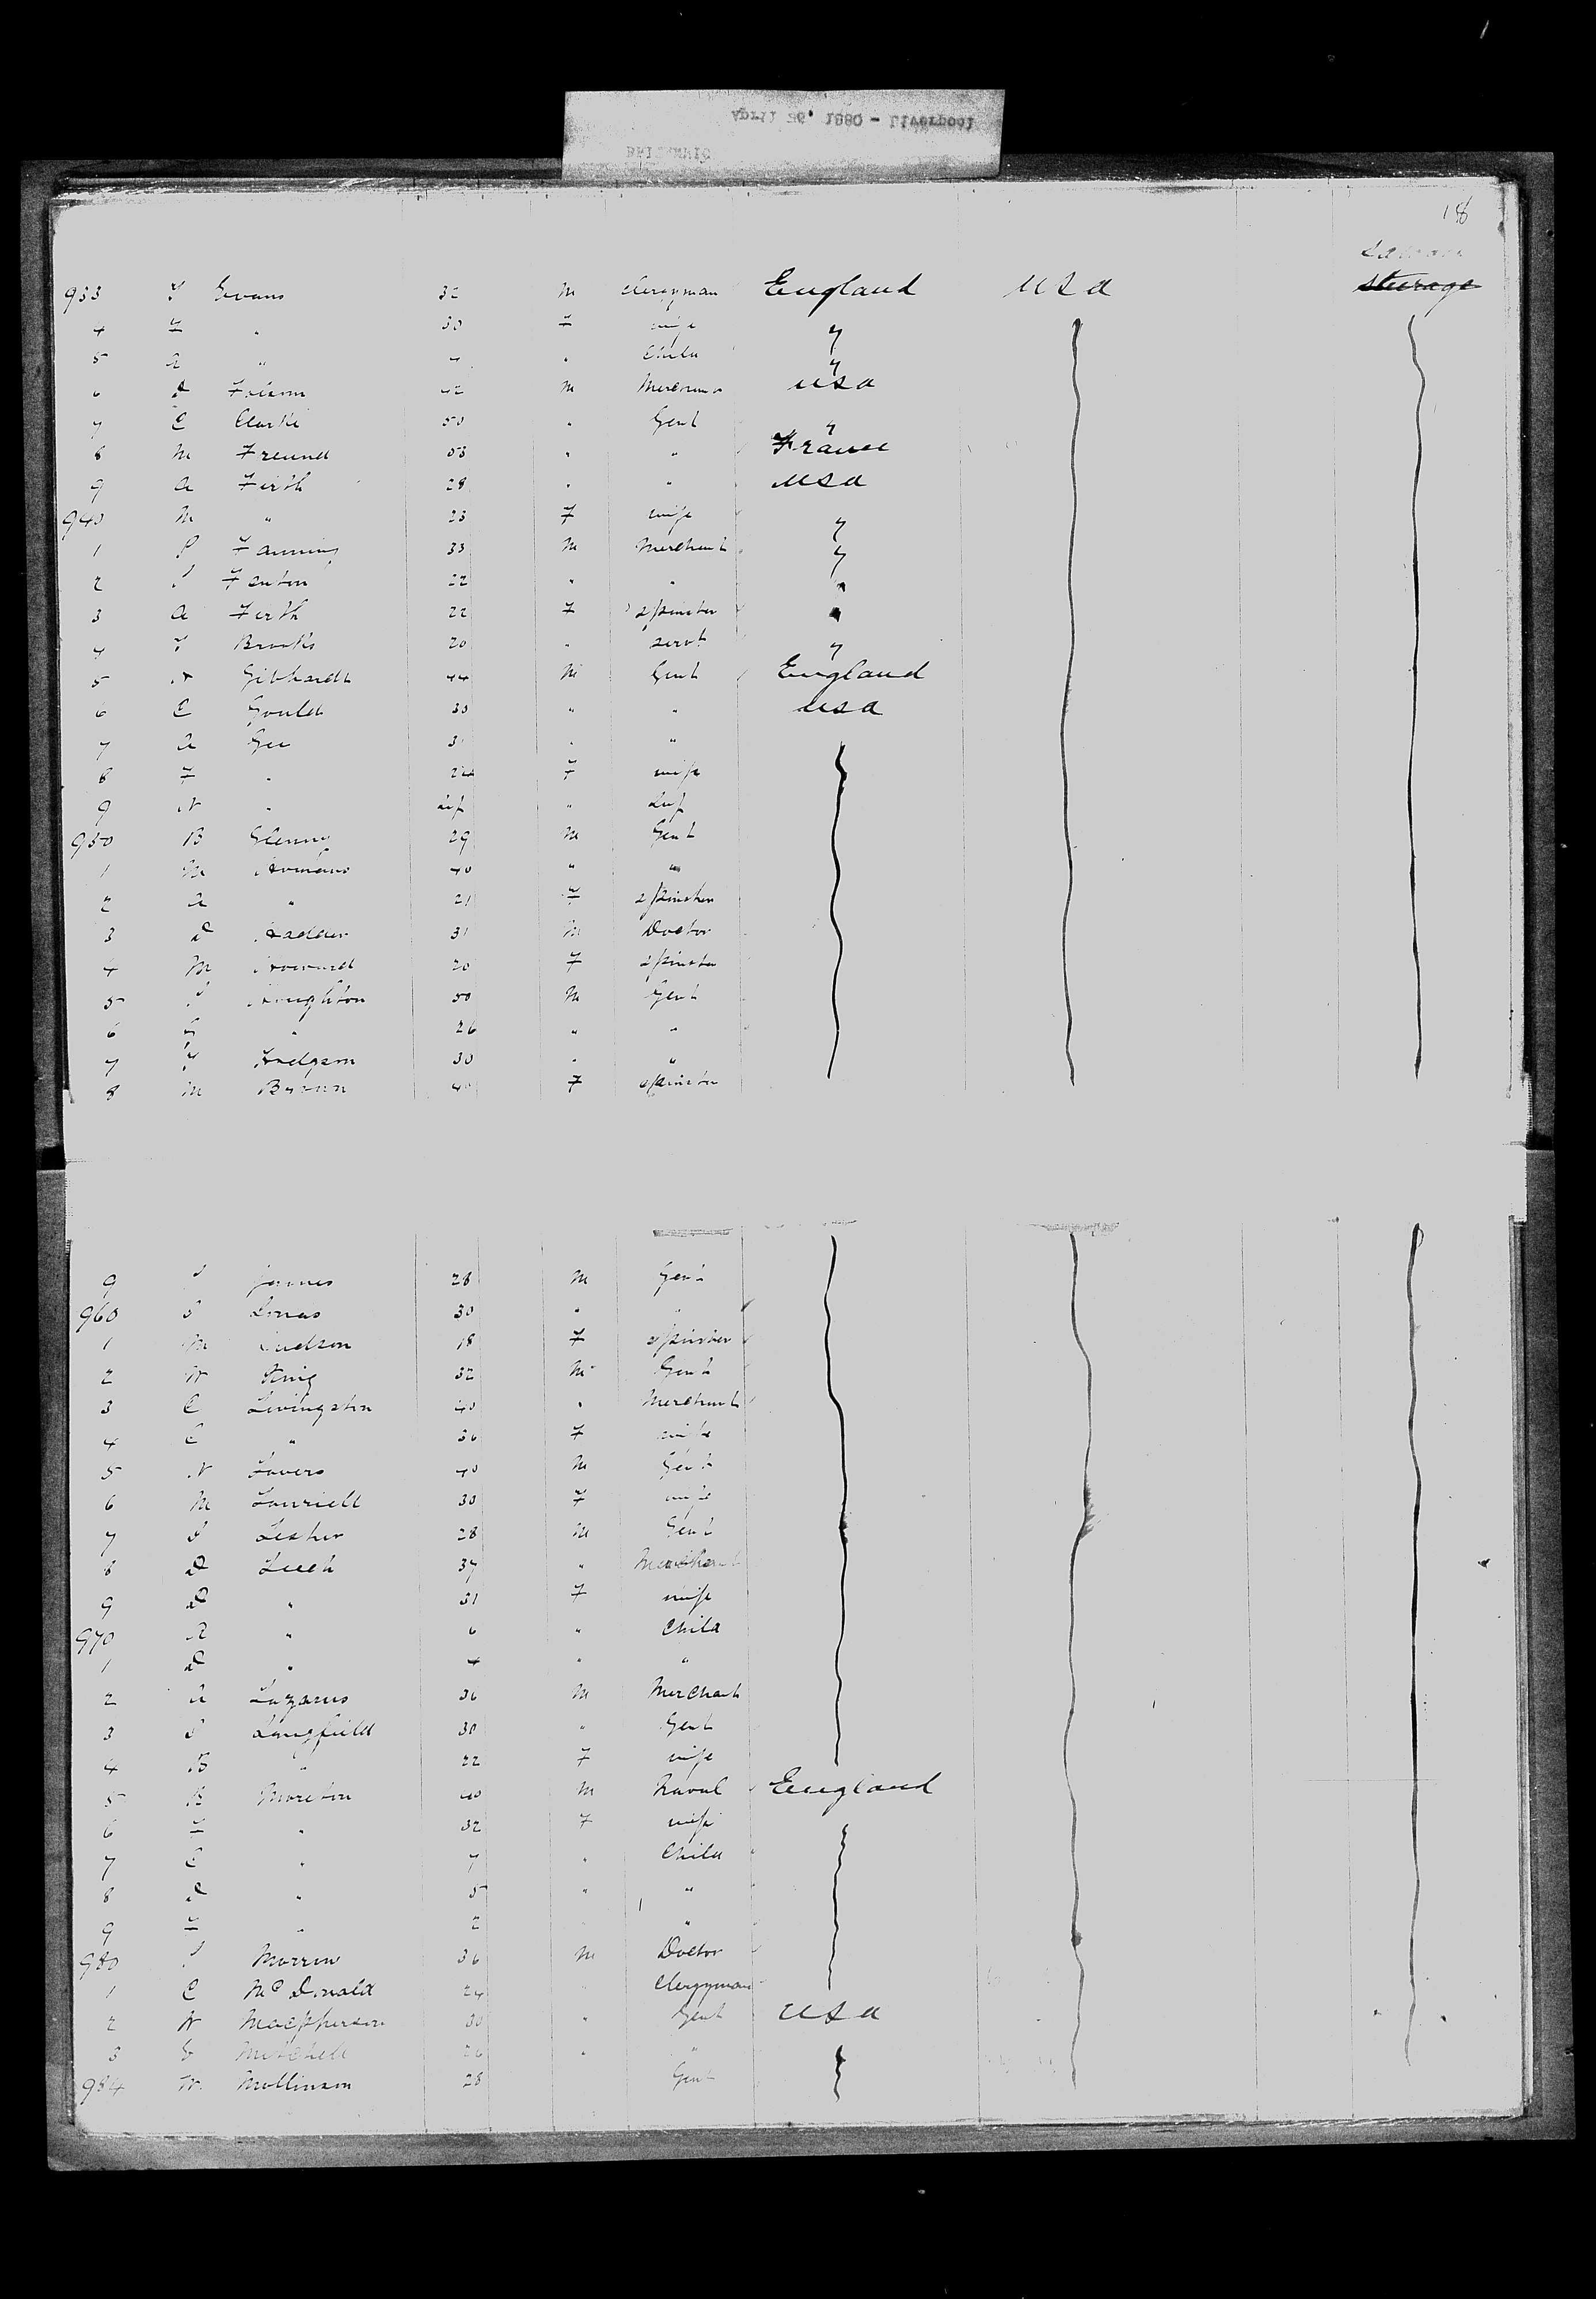 April 26, 1880 - Liverpool
BRITANNIC
18
933 Evans 32 M Clergyman England USA steerage
4 F " 30 F wife "
5 A " " Child "
6 42 M Merchant USA
7 C Clarke 50 " Gent "
8 M Freund 53 " " France
9 A Firth 28 " " USA
940 M " 23 F wife "
1 Fanning 33 M Merchant "
2 Fenton 22 " " "
3 A Firth 22 F spinster "
4 Brooks 20 " servt "
5 Gibhardt 44 M Gent England
6 C Gould 30 " " USA
7 A Gee " "
8 F " F wife
9 " Inf " Inf
950 B Glenny 29 M Gent
1 M 40 " "
2 A " 21 F spinster
3 31 M Doctor
4 M Howard 20 F spinster
5 Houghton 50 M Gent
6 " 26 " "
7 Hodgson 30 " "
8 M Brown 40 F spinster
9 James 28 M Gent
960 30 " "
1 M Judson 18 F spinster
2 W King 32 M Gent
3 C Livingston 40 " Merchant
4 C " 36 F wife
5 40 M Gent
6 M 30 F wife
7 28 M Gent
8 D Leech 37 " Merchant
9 D " 31 F wife
970 A " 6 " Child
1 D " 4 " "
2 A Lazarus 36 M Merchant
3 Langfield 30 " Gent
4 B " 22 F wife
5 Moreton 40 M Naval England
6 F " 32 F wife
7 C " 7 " Child
8 D " 5 " "
9 F " 2 " "
980 Morrow 36 M Doctor
1 C McDonald 24 " Clergyman
2 W Macpherson 30 " Gent USA
3 Mitchell 26 " "
984 W. Mollinson 28 Gent